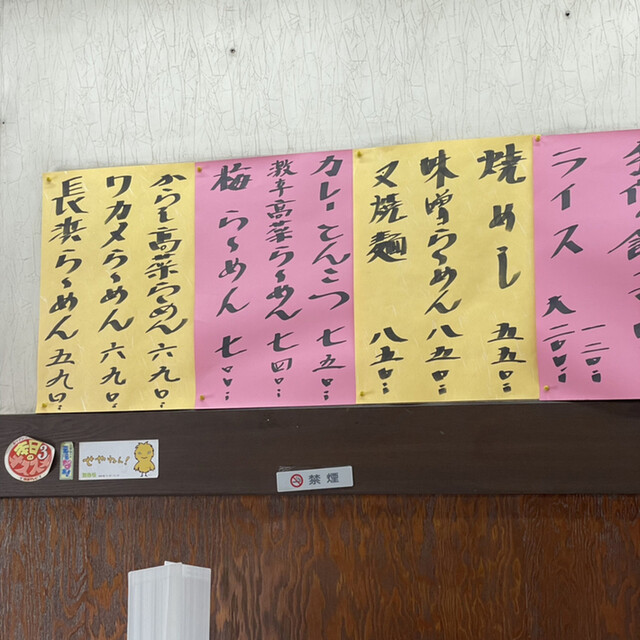 ライス 大二〇〇円
一二〇円
焼めし 五五〇円
味噌らーめん 八五〇円
叉焼麺 八五〇円
カレーとんこつ 七五〇円
激辛高菜らーめん 七四〇円
梅らーめん 七〇〇円
からし高菜らーめん 六九〇円
ワカメらーめん 六九〇円
長浜らーめん 五九〇円
せやねん!
禁煙